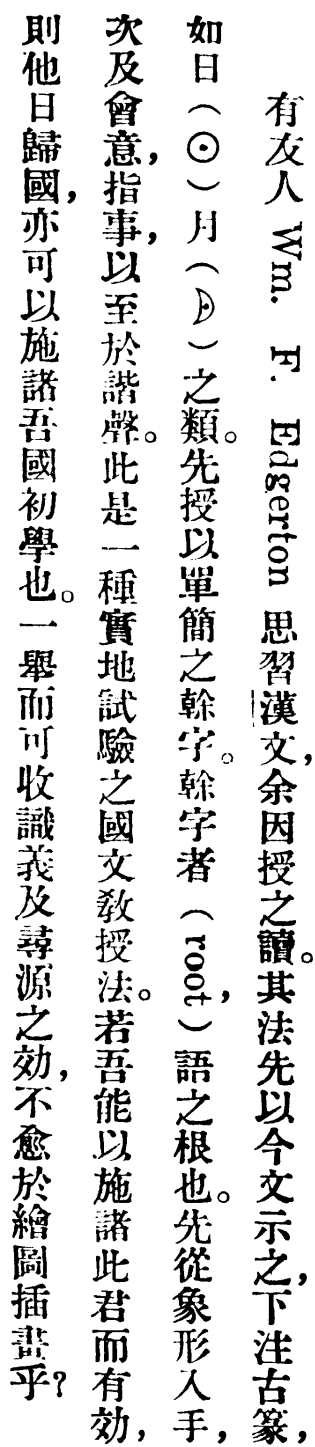 有友人 Wm. F. Edgerton 思習漢文，余因授之讀。其法先以今文示之，下注古篆，
如日（⊙）月（☽）之類。先授以單簡之榦字。榦字者（root），語之根也。先從象形入手，
次及會意，指事，以至於諧聲。此是一種實地試驗之國文敎授法。若吾能以施諸此君而有効，
則他日歸國，亦可以施諸吾國初學也。一舉而可收識義及尋源之効，不愈於繪圖插畫乎？